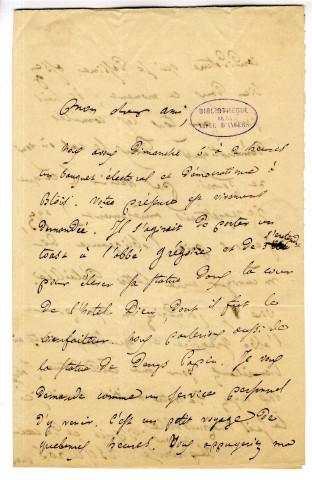 Mon cher ami,
BIBLIOTHEQUE
DE LA
VILLE D'ANGERS
Nous avons Dimanche à 2 heures
un banquet électoral et démocratique à
Blois. Votre présence est vivement
demandée. Il s'agirait de porter un
toast à l'abbé Grégoire et de s'entendre
pour élever sa statue dans la cour
de l'hôtel Dieu dont il fut le
bienfaiteur. Nous parlerions aussi de
la statue de Denys Papin. Je vous
demande comme un service personnel
d'y venir. C'est un petit voyage de
quelques heures. Vous appuyeriez ma